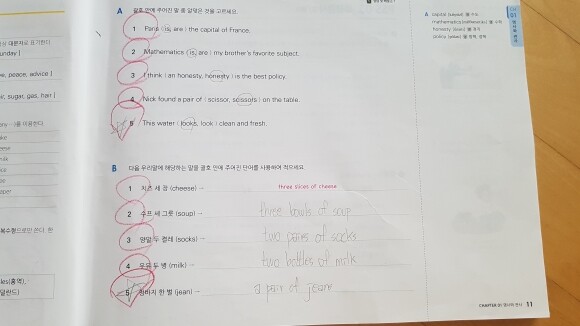 A 괄호 안에 주어진 말 중 알맞은 것을 고르세요.
1 Paris ( is, are ) the capital of France.
2 Mathematics ( is, are ) my brother's favorite subject.
3 I think ( an honesty, honesty ) is the best policy.
4 Nick found a pair of ( scissor, scissors ) on the table.
5 This water ( looks, look ) clean and fresh.
B 다음 우리말에 해당하는 말을 괄호 안에 주어진 단어를 사용하여 적으세요.
1 치즈 세 장 (cheese) → three slices of cheese
2 수프 세 그릇 (soup) → three bowls of soup
3 양말 두 켤레 (socks) → two pairs of socks
4 우유 두 병 (milk) → two bottles of milk
5 청바지 한 벌 (jean) → a pair of jeans
A capital
mathematics
honesty
policy
01
CHAPTER 01 명사와 관사 11
unday ]
e, peace, advice ]
ir, sugar, gas, hair ]